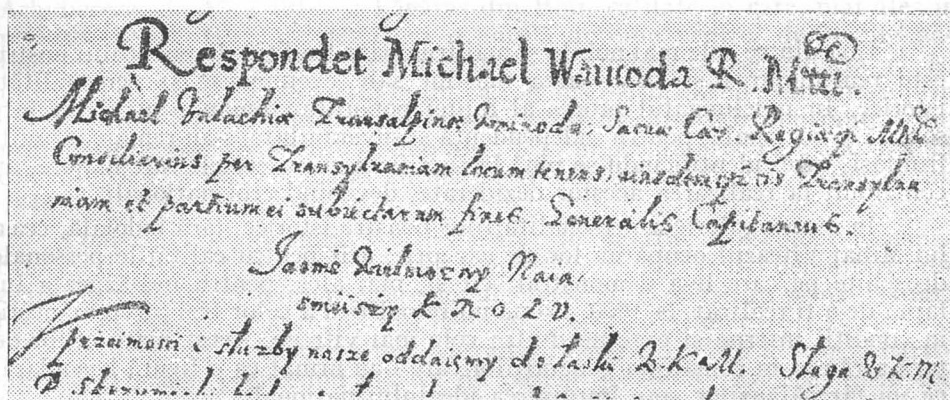 Respondet Michael Waiuoda R. Mtti.
Michael Valachiæ Transalpinæ Waiuoda, Sacræ Cæs. Regiæqȝ Mttis
Consiliarius per Transyluaniam locum tenens, eiusdemqȝ cis Transylua
niam et partium ei subiectarum fines Generalis Capitaneus.
Jasnie Wielmozny Naia
snieiszy KROLV.
Vprzeimosci i służby nasze oddaięmy do łaski W.K.M. Sługa W.K.M.